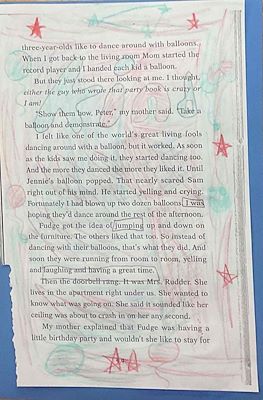 three-year-olds like to dance around with balloons.
When I got back to the living room Mom started the
record player and I handed each kid a balloon.
But they just stood there looking at me. I thought,
either the guy who wrote that party book is crazy or
I am!
"Show them how, Peter," my mother said. "Take a
balloon and demonstrate."
I felt like one of the world's great living fools
dancing around with a balloon, but it worked. As soon
as the kids saw me doing it, they started dancing too.
And the more they danced the more they liked it. Until
Jennie's balloon popped. That nearly scared Sam
right out of his mind. He started yelling and crying.
Fortunately I had blown up two dozen balloons. I was
hoping they'd dance around the rest of the afternoon.
Fudge got the idea of jumping up and down on
the furniture. The others liked that too. So instead of
dancing with their balloons, that's what they did. And
soon they were running from room to room, yelling
and laughing and having a great time.
Then the doorbell rang. It was Mrs. Rudder. She
lives in the apartment right under us. She wanted to
know what was going on. She said it sounded like her
ceiling was about to crash in on her any second.
My mother explained that Fudge was having a
little birthday party and wouldn't she like to stay for